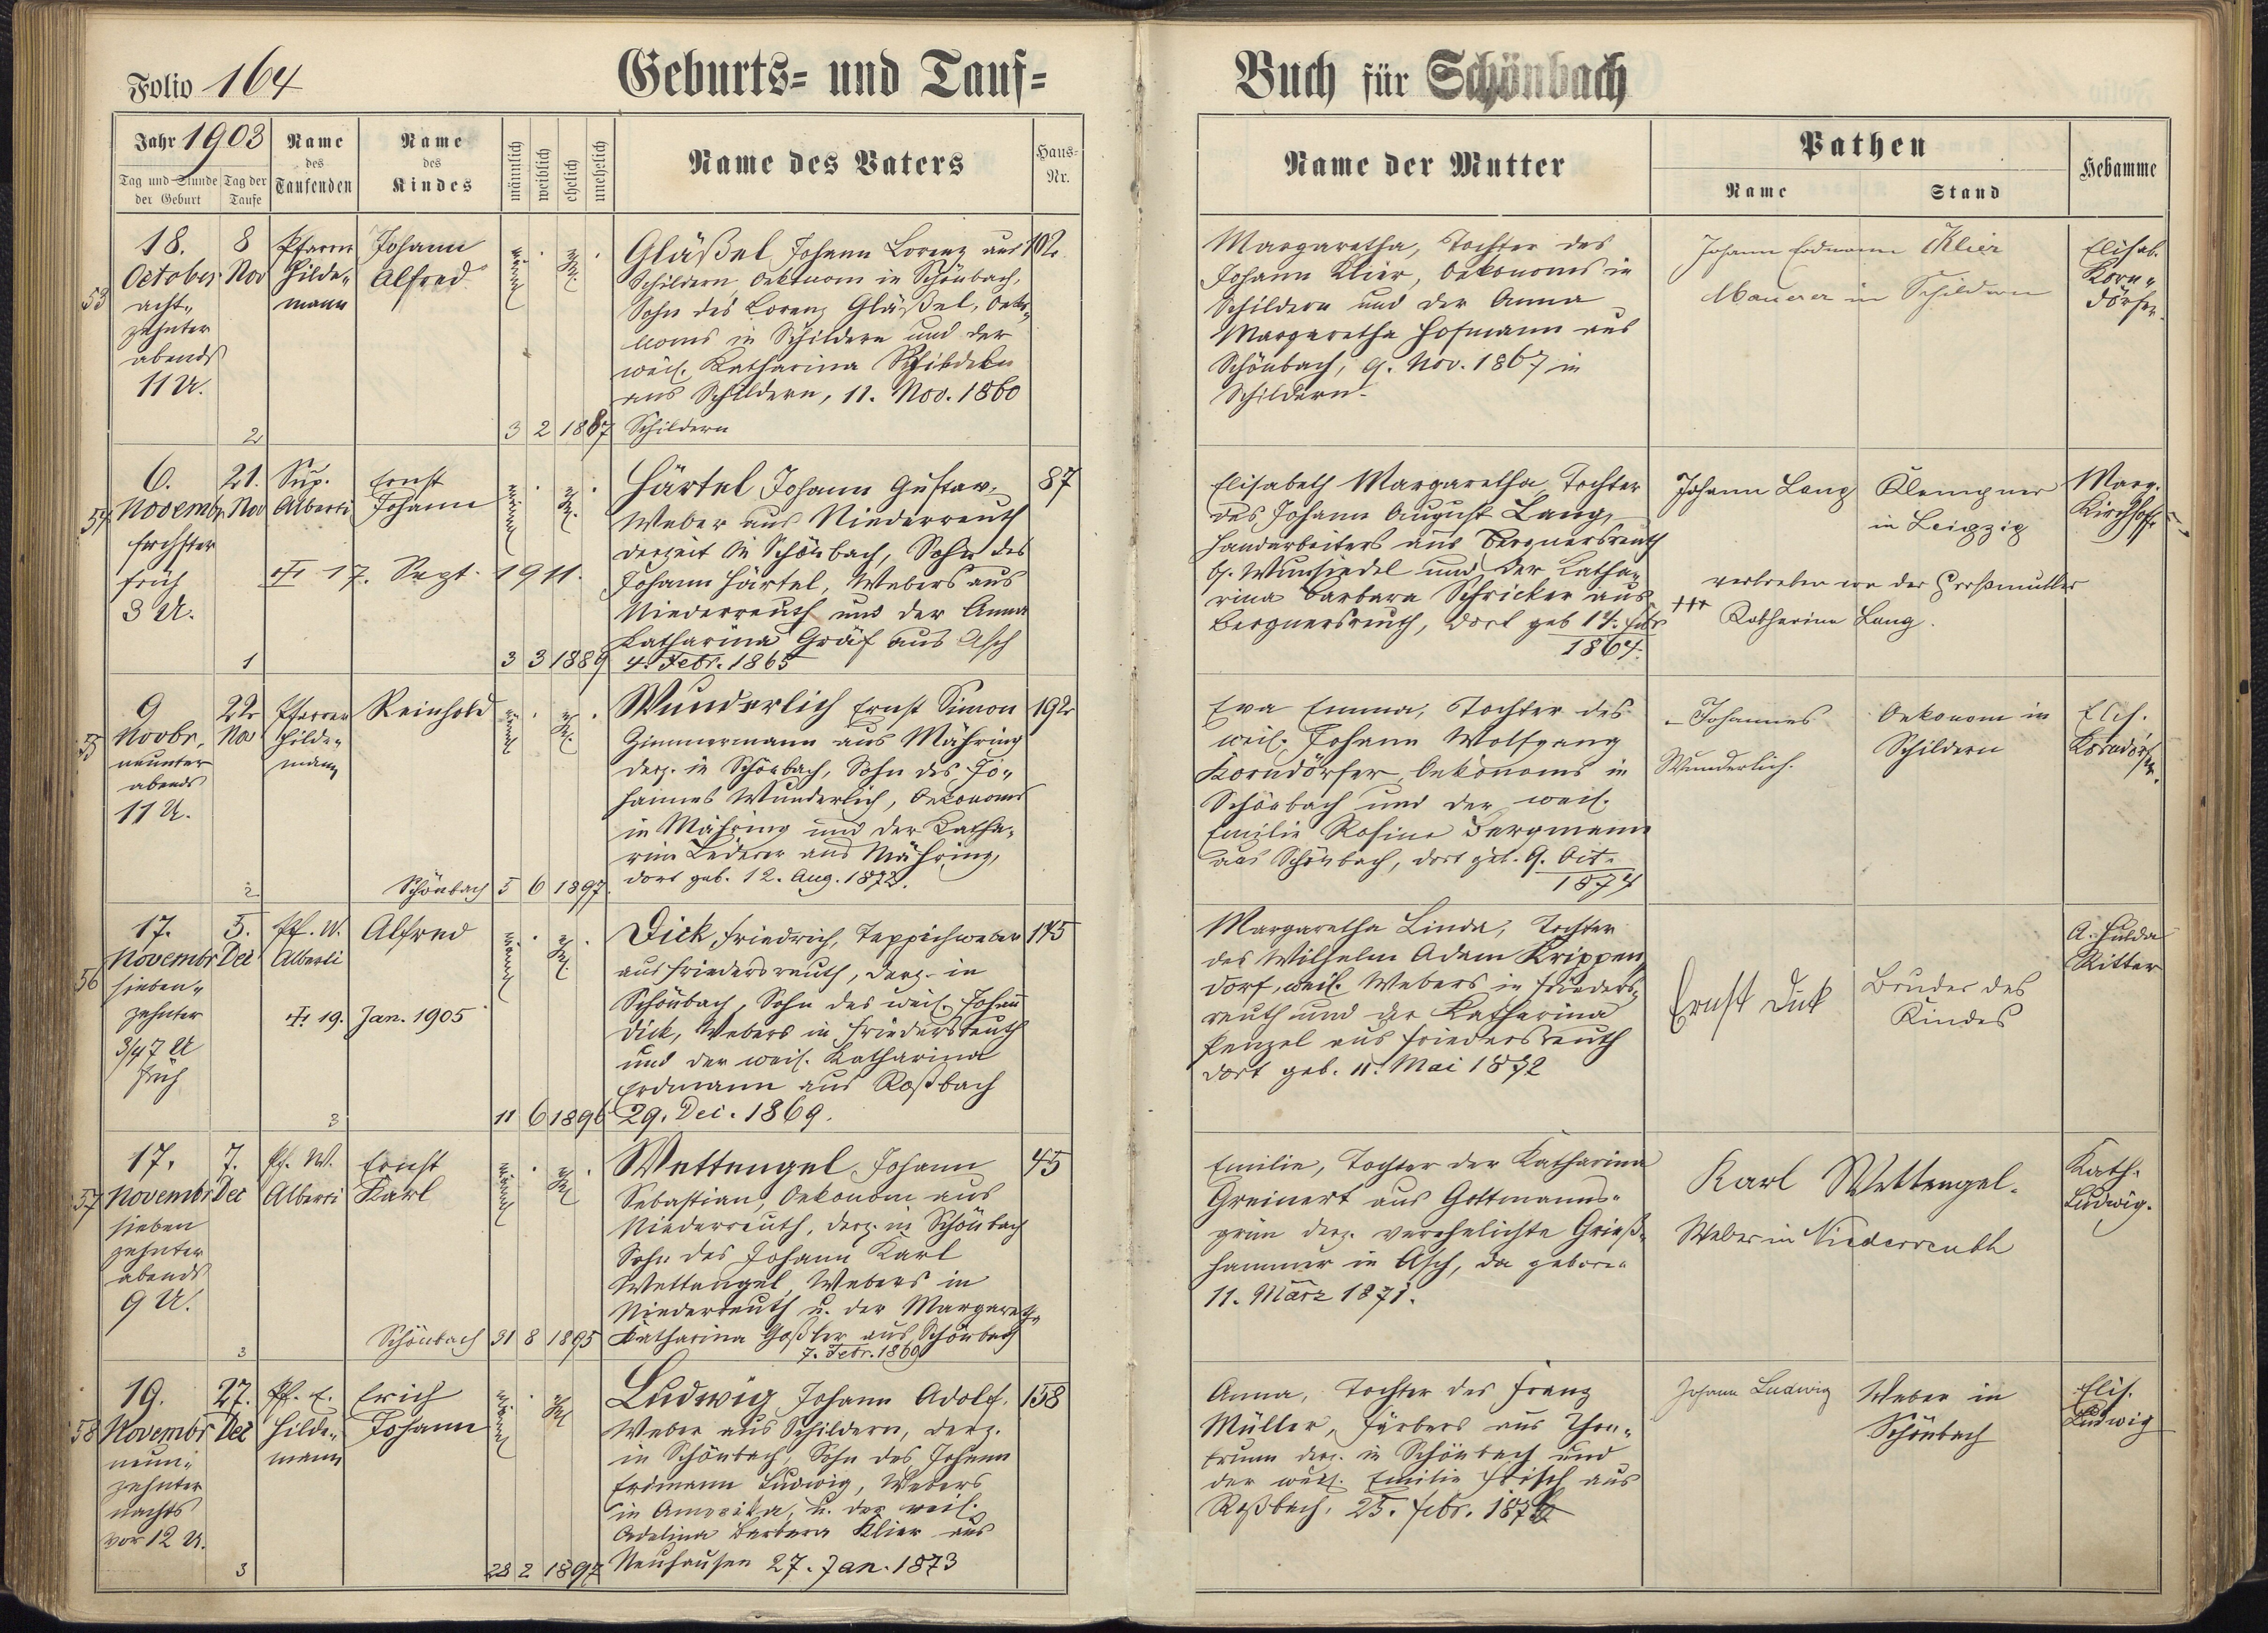 Folio 164
Geburts= und Tauf=
Buch für Schönbach
Jahr 1903
Tag und Stunde der Geburt
Tag der Taufe
Name des Taufenden
Name des Kindes
männlich
weiblich
ehelich
unehelich
Name des Vaters
Haus-Nr.
Name der Mutter
Pathen
Name
Stand
Hebamme
53
18.
October
acht-
zehnter
abends
11 U.
8
Nov
2
Pfarrer
Hilde-
mann
Johann
Alfred
3 2 1887
Gläßel, Johann Lorenz aus
Schildern, Oekonom in Schönbach,
Sohn des Lorenz Gläßel, Oeko-
noms in Schildern und der
weil. Katharina
aus Schildern, 11. Nov. 1860
Schildern
102
Margaretha, Tochter des
Johann Klier, Oekonoms in
Schildern und der Anna
Margaretha Hofmann aus
Schönbach, 9. Nov. 1867 in
Schildern.
Johann Erdmann Klier
Maurer in Schildern
Elisab.
Korn-
dörfer.
54
6.
Novembr
sechster
früh
3 U.
21.
Nov
1
Sup.
Alberti
Ernst
Johann
17. Sept. 1911.
3 3 1889
Härtel Johann Gustav,
Weber aus Niederreuth
derzeit in Schönbach, Sohn des
Johann Härtel, Webers aus
Niederreuth und der Anna
Katharina Gräf aus Asch
4. Febr. 1865
87
Elisabeth Margaretha, Tochter
des Johann August Lang,
Handarbeiters aus Bergnersreuth
b. Wunsiedel und der Katha-
rina Barbara Schricker aus
Bergnersreuth, dort geb 14. Febr
1864.
Johann Lang Klempner
in Leipzig
vertreten von der Großmutter
+++ Katharina Lang.
Marg.
Kirchhoff
55
9
Novbr.
neunter
abends
11 U.
22
Nov
2
Pfarrer
Hilde-
mann
Reinhold
Schönbach 5 6 1897.
Wunderlich Ernst Simon
Zimmermann aus Mähring
derz. in Schönbach, Sohn des Jo-
hannes Wunderlich, Oekonoms
in Mähring und der Katha-
rina Lederer aus Mähring,
dort geb. 12. Aug. 1872.
192
Eva Emma, Tochter des
weil. Johann Wolfgang
Korndörfer, Oekonoms in
Schönbach und der weil.
Emilie Rosine Bergmann
aus Schönbach, dort geb. 9. Oct.
1874
Johannes
Wunderlich.
Oekonom in
Schildern
Elis.
Korndörfer.
56
17.
Novembr
sieben-
zehnter
3/4 7 U
früh
5.
Dec
3
Pf. W.
Alberti
Alfred
19. Jan. 1905
11 6 1896
Dick, Friedrich, Teppichweber
aus Friedersreuth, derz. in
Schönbach, Sohn des weil. Johann
Dick, Webers in Friedersreuth
und der weil. Katharina
Erdmann aus Roßbach
29. Dec. 1869.
145
Margaretha Linda, Tochter
des Wilhelm Adam Krippen-
dorf, weil. Webers in Frieders-
reuth und der Katharina
Penzel aus Friedersreuth
dort geb. 11. Mai 1872
Ernst Dick
Bruder des
Kindes
A. Hulda
Ritter
57
17.
Novembr
sieben
zehnter
abends
9 U.
7.
Dec
3
Pf. W.
Alberti
Ernst
Karl
Schönbach 31 8 1895
Wettengel, Johann
Sebastian, Oekonom aus
Niederreuth, derz. in Schönbach
Sohn des Johann Karl
Wettengel, Webers in
Niederreuth u. der Margareth-
Katharina Goßler aus Schönbach
7. Febr. 1869
45
Emilie, Tochter der Katharina
Greinert aus Gottmanns-
grün derz. verehelichte Grieß-
hammer in Asch, da geboren
11. März 1871.
Karl Wettengel.
Weber in Niederreuth
Kath.
Ludwig.
58
19.
Novembr
neun-
zehnter
nachts
vor 12 U.
27.
Dec
3
Pf. E.
Hilde-
mann
Erich
Johann
28 2 1897
Ludwig Johann Adolf,
Weber aus Schildern, derz.
in Schönbach, Sohn des Johann
Erdmann Ludwig, Webers
in Amerika, u. der weil.
Adeline Barbara Klier aus
Neuhausen 27. Jan. 1873
158
Anna, Tochter des Franz
Müller, Färbers aus Thon-
brunn derz. in Schönbach und
der weil. Emilie aus
Roßbach, 25. Febr.
Johann Ludwig
Weber in
Schönbach
Elis.
Ludwig